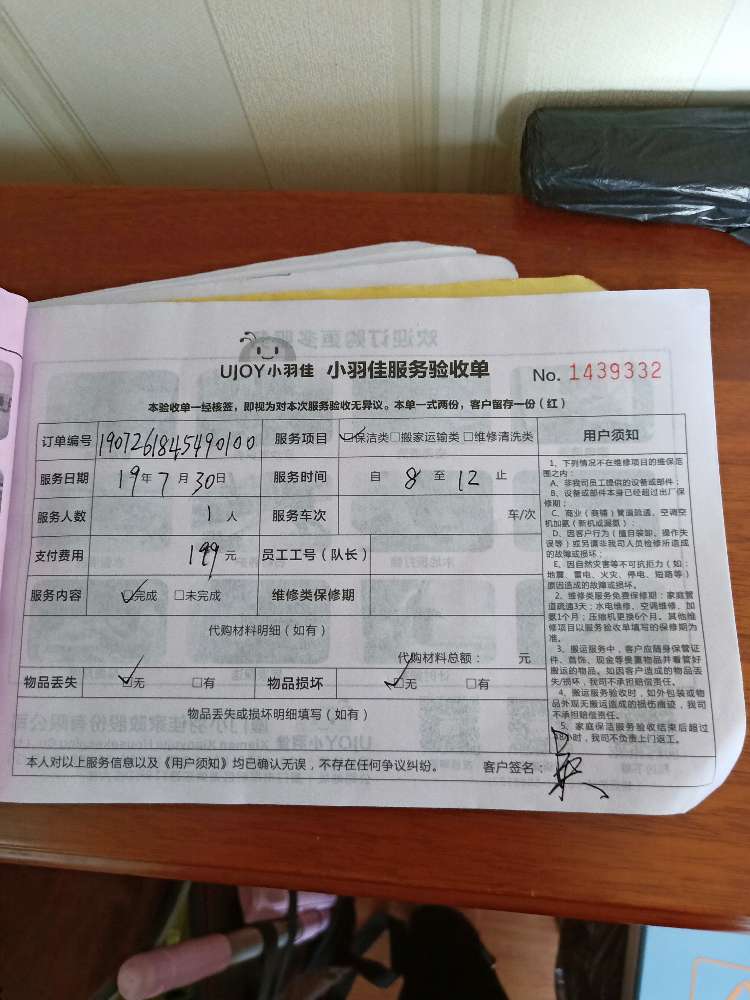 UJOY小羽佳 小羽佳服务验收单 No. 1439332
本验收单一经核签，即视为对本次服务验收无异议。本单一式两份，客户留存一份（红）
订单编号 1907261845490100 服务项目 ☑保洁类□搬家运输类□维修清洗类
服务日期 19年7月30日 服务时间 自 8 至 12 止
服务人数 1 人 服务车次 车/次
支付费用 199 元 员工工号（队长）
服务内容 ☑完成 □未完成 维修类保修期
代购材料明细（如有）
代购材料总额： 元
物品丢失 ☑无 □有 物品损坏 ☑无 □有
物品丢失或损坏明细填写（如有）
本人对以上服务信息以及《用户须知》均已确认无误，不存在任何争议纠纷。 客户签名：
用户须知
1、下列情况不在维修项目的维保范
围之内：
A、非我司员工提供的设备或部件；
B、设备或部件本身已经超过出厂保
修期；
C、商业（商铺）管道疏通，空调空
机加氨（新机或漏氨）；
D、因客户行为（擅自装卸、操作失
误等）或另请非我司人员检修所造成
的故障或损坏；
E、因自然灾害等不可抗拒力（如：
地震、雷电、火灾、停电、短路等）
原因造成的故障或损坏。
2、维修类服务免费保修期：家庭管
道疏通3天；水电维修、空调维修、加
氨1个月；压缩机更换6个月。其他维
修项目以服务验收单填写的保修期为
准。
3、搬运服务中，客户应随身保管证
件、首饰、现金等贵重物品并看管好
搬运的物品。如因客户造成的物品丢
失/损坏，我司不承担赔偿责任。
4、搬运服务验收时，如外包装或物
品外观无搬运造成的损伤痕迹，我司
不承担赔偿责任。
5、家庭保洁服务验收结束后超过
48小时，我司不负责上门返工。